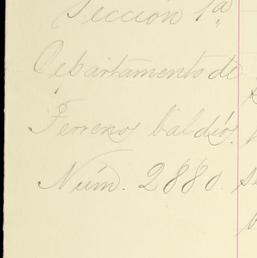 Sección 1ª
Departamento de
Terrenos baldíos.
Núm. 2880.